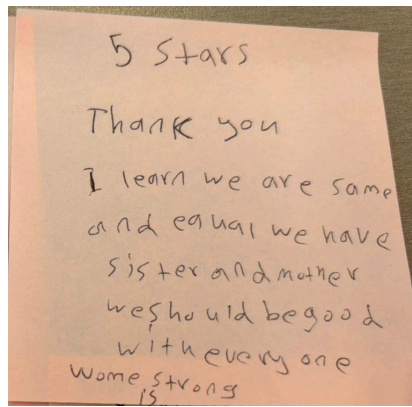 5 Stars
Thank you
I learn we are same
and equal we have
sister and mother
we should be good
with every one
wome strong
is